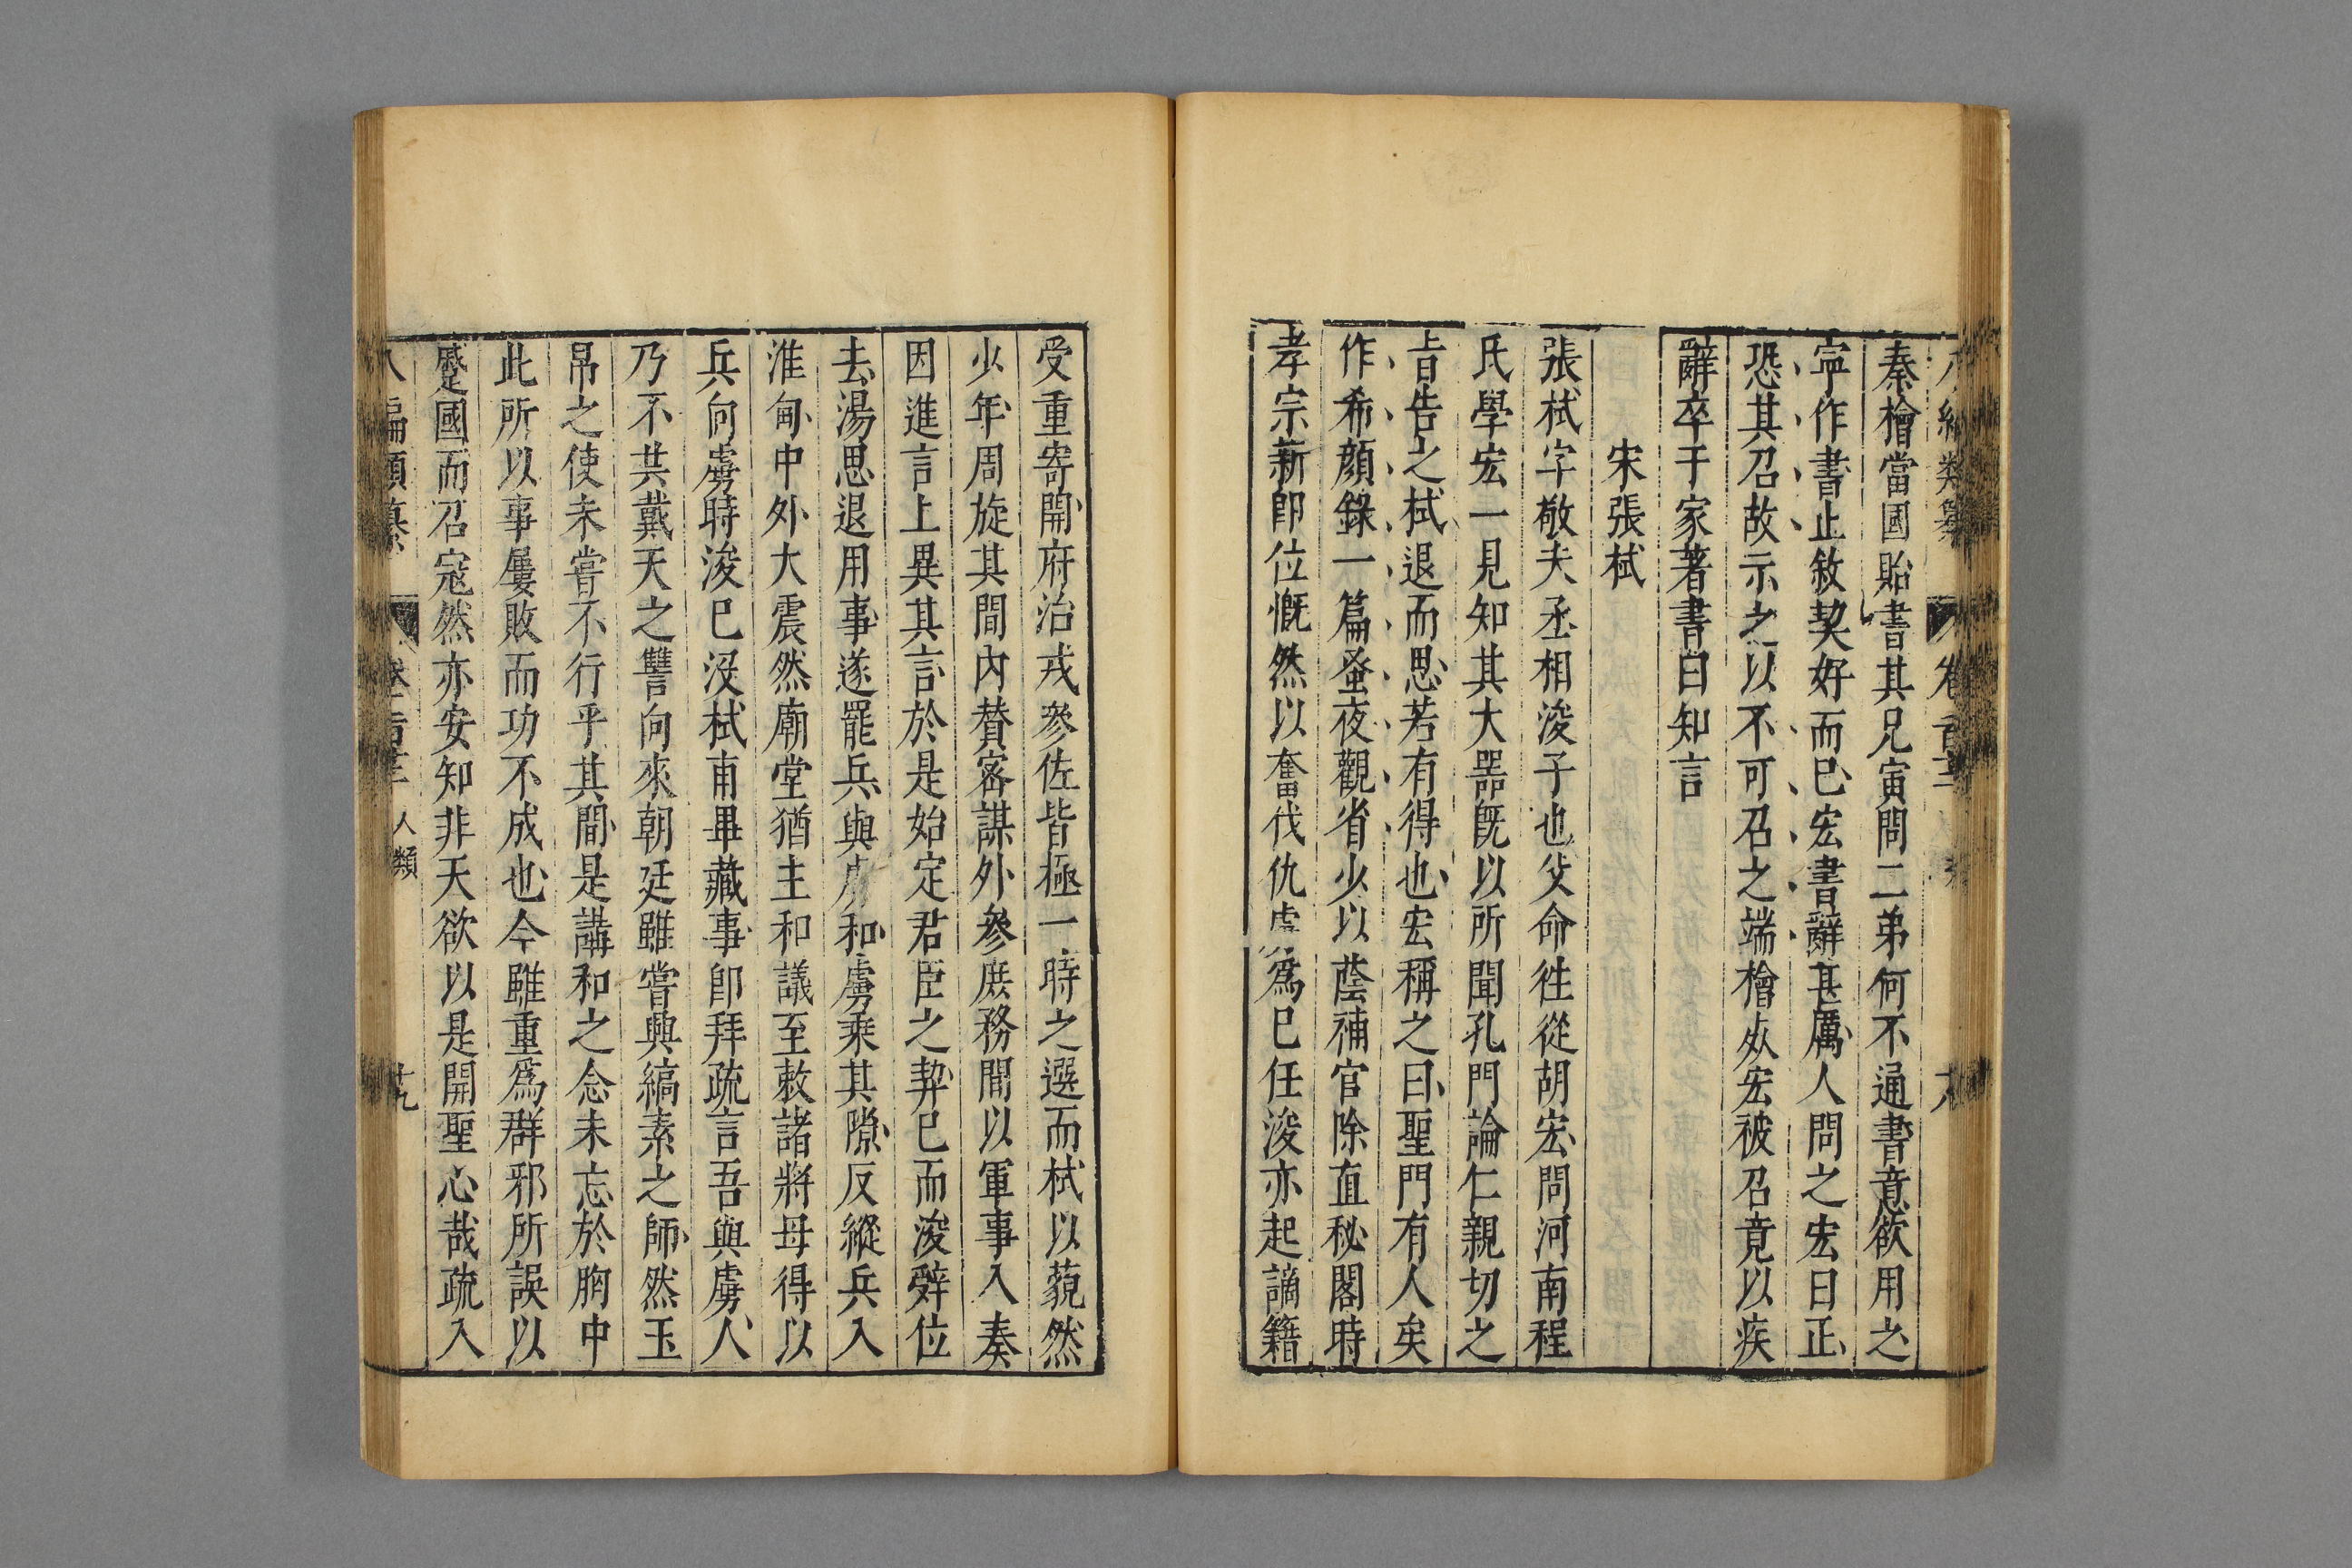 秦檜當國貽書其兄寅問二弟何不通書意欲用之
寧作書止敘契好而已宏書辭甚厲人問之宏曰正
恐其召故示之以不可召之端檜死宏被召竟以疾
辭卒于家著書曰知言
宋張栻
張栻字敬夫丞相浚子也父命往從胡宏問河南程
氏學宏一見知其大器旣以所聞孔門論仁親切之
㫖告之栻退而思若有得也宏稱之曰聖門有人矣
作希顏錄一篇蚤夜觀省少以蔭補官除直秘閣時
孝宗新卽位慨然以奮伐仇虜爲已任浚亦起謫籍
受重寄開府治戎參佐皆極一時之選而栻以藐然
少年周旋其間內賛宻謀外參庶務間以軍事入奏
因進言上異其言於是始定君臣之契已而浚辤位
去湯思退用事遂罷兵與虜和虜乘其隙反縱兵入
淮甸中外大震然廟堂猶主和議至敕諸將毋得以
兵向虜時浚已沒栻甫畢藏事卽拜疏言吾與虜人
乃不共戴天之讐向來朝廷雖嘗興縞素之師然玉
帛之使未嘗不行乎其間是講和之念未忘於胸中
此所以事屢敗而功不成也今雖重爲群邪所誤以
蹙國而召寇然亦安知非天欲以是開聖心哉疏入
八編類纂
人類
十九